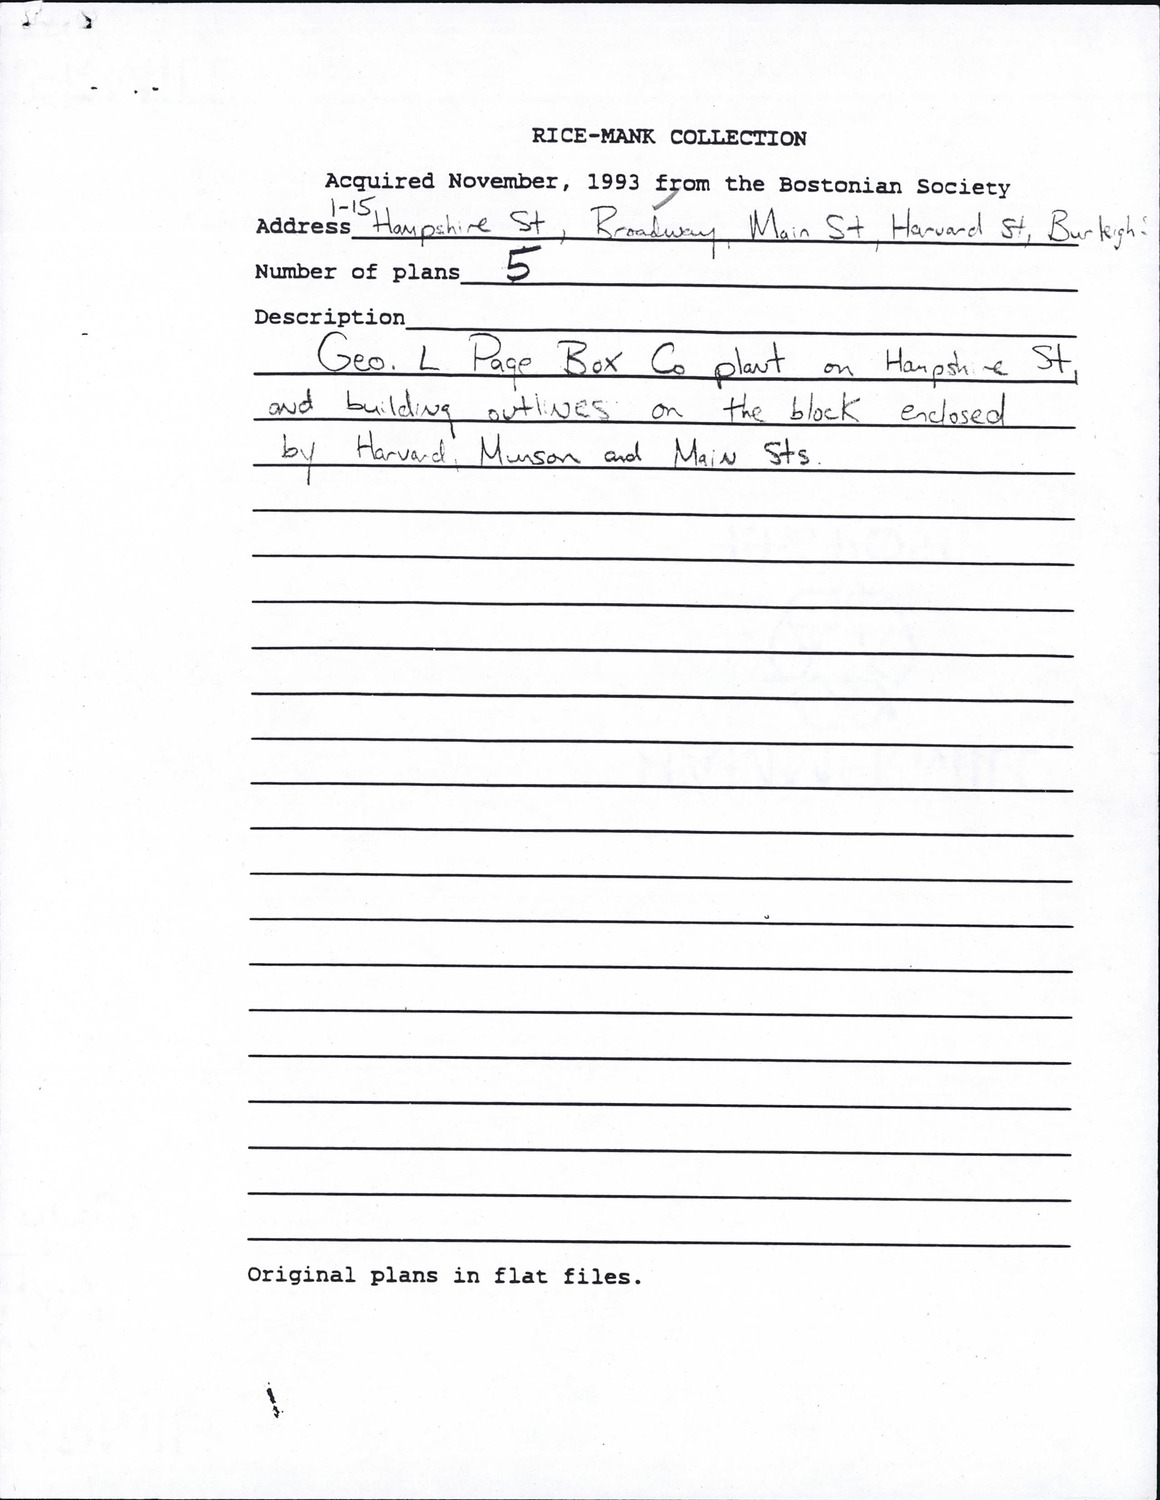 RICE-MANK COLLECTION
Acquired November, 1993 from the Bostonian Society
Address 1-15 Hampshire St, Broadway, Main St, Harvard St, Burleigh
Number of plans 5
Description
Geo. L Page Box Co plant on Hampshire St,
and building outlines on the block enclosed
by Harvard, Munson and Main Sts.
Original plans in flat files.